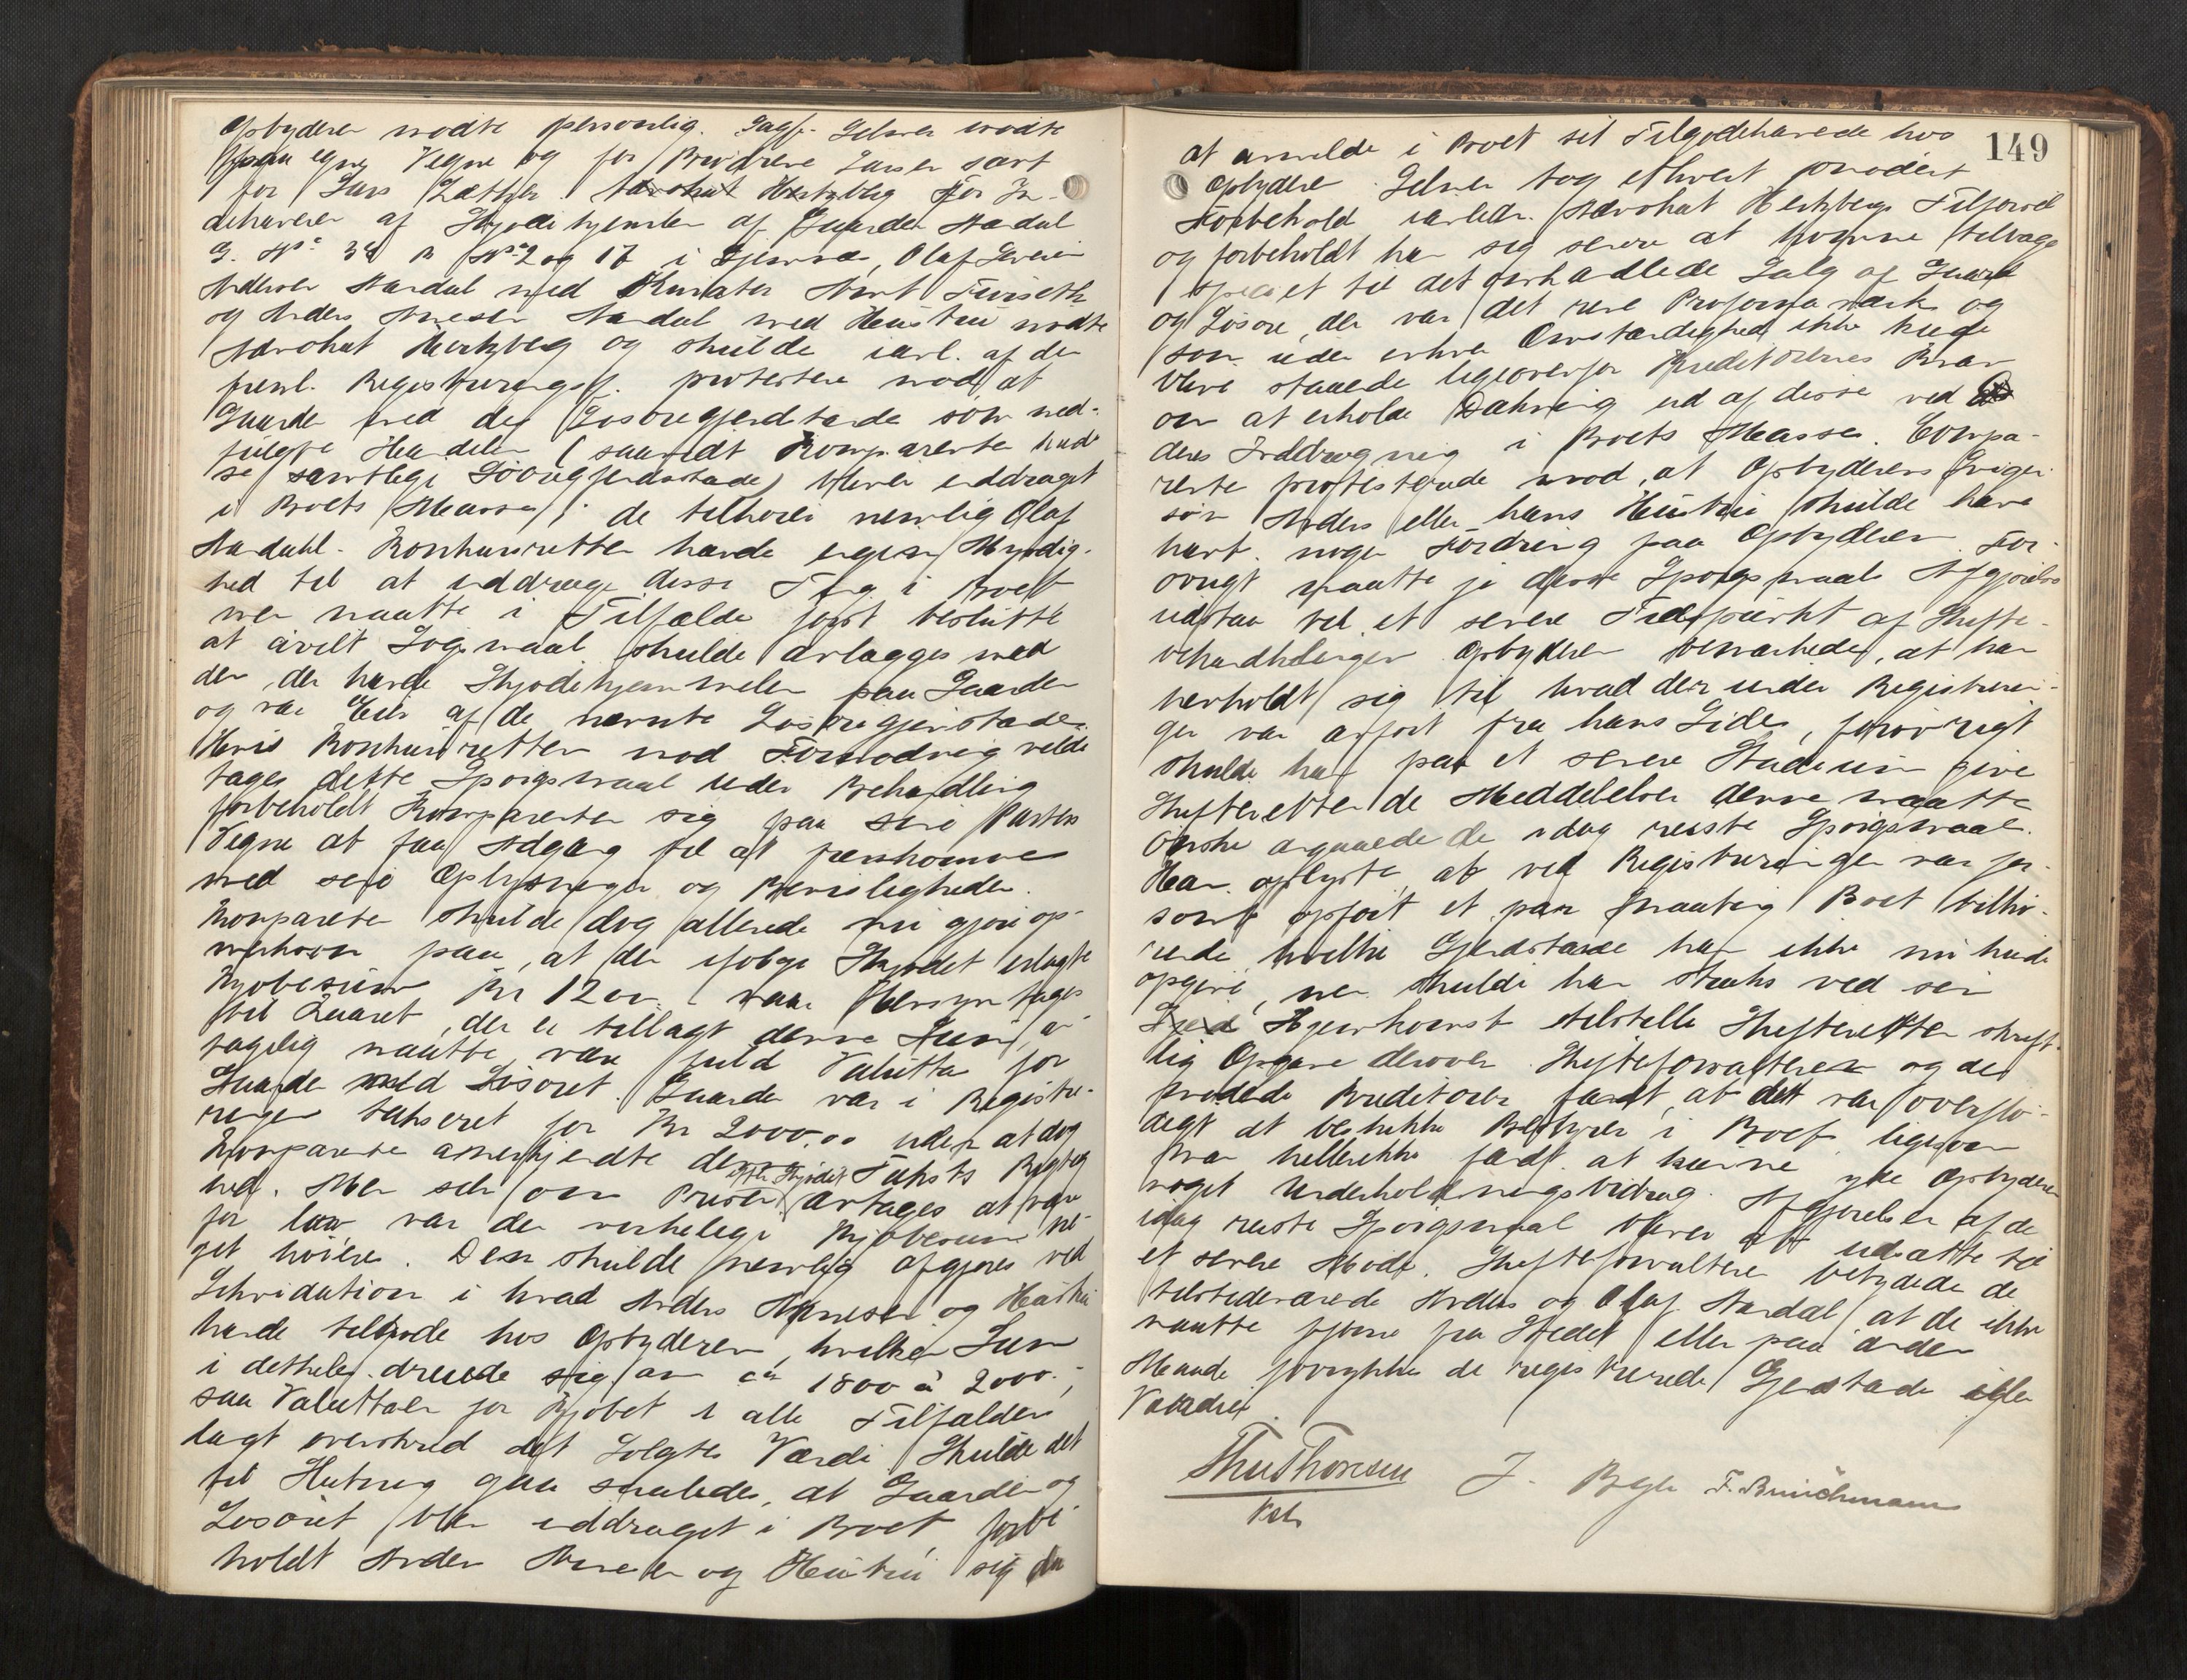 Opbyderen mødte personlig. Sagf. Selmer mødte
paa egne Vegne og for Brødrene Larsen samt
for Lars Sæther. Advokat Hertzberg For In-
dehaveren af Skjødehjemlen af Gaarden Aardal
G. No 34 B No 2 og 17 i Hjemnæs, Olaf
Andersen Aardal med Kurator
og Anders Arnesen Aardal med Hustru mødte
Advokat Hertzberg og skulde i anl. af den
freml. Registreringsf. protestere mod, at
Gaarden med de Løsøregjenstande som med-
fulgte Handelen (saavidt Komparenten vid-
ste samtlige Løsøregjenstande) blev inddraget
i Boets Masse; de tilhører nemlig Olaf
Aardahl. Konkursretten havde ingen Myndig-
hed til at inddrage disse Ting i Boet
men maatte i Tilfælde først beslutte
at civilt Sogsmaal skulde anlægges mod
den, der havde Skjødehjemmelen paa Gaarden
og var Eier af de nævnte Løsøregjenstande.
Hvis Konkursretten mod Formodning vilde
tage dette Spørgsmaal under Behandling
forbeholdt Komparenten sig paa sine Parters
Vegne at faa Adgang til at fremkomme
med sine Oplysninger og Bevisligheder.
Komparenten skulde dog allerede nu gjøre op-
mærksom paa, at den ifølge Skjødet erlagte
Kjøbesum Kr 1200. naar Hensyn tages
til Kaaret, der er tillagt denne Sum,
tagelig maatte være fuld Valutta for
Gaarden med Løsøret. Gaarden var i Registre-
ringen takseret for Kr 2000.00 uden at dog
Komparenten anerkjendte denne Taksts Rigtig-
hed. Men selv om Prisen efter Skjødet antages at være
for lav var den virkelige Kjøbesum no-
get høiere. Den skulde nemlig afgjøres ved
Likvidation i hvad Anders Arnesen og Hustru
havde tilgode hos Opbyderen, hvilken Sum
i det hele dreiede sig om ca 1800 à 2000.,
saa Valuttaen for Kjøbet i alle Tilfælder
langt overskred det Solgtes Værdi. Skulde det
til Slutning gaa saaledes, at Gaarden og
Løsøret blev inddraget i Boet, forbe-
holdt Anders Arnesen og Hustru sig da
149
at anmelde i Boet sit Tilgodehavende hos
Opbyderen. Selmer tog ethvert fornødent
Forbehold i anledn. Advokat Hertzbergs Tilførsel
og forbeholdt han sig senere at komme tilbage
specielt til det omhandlede Salg af Gaard
og Løsøre, der var det rene Proforma værk og
som under enhver Omstændighed ikke kunde
blive staaende ligeoverfor Kreditorernes Krav
om at erholde Dækning ud af disse ved
deres Inddragning i Boets Masse. Compa-
renten protesterede mod, at Opbyderens Sviger-
søn Anders eller hans Hustru skulde have
havt nogen Fordring paa Opbyderen. For-
øvrigt maatte jo disse Spørgsmaals Afgjørelse
udstaa til et senere Tidspunkt af Skifte-
behandlingen. Opbyderen bemærkede, at han
henholdt sig til hvad der under Registrerin-
gen var anført fra hans Side, forøvrigt
skulde han paa et senere Stadium give
Skifteretten de Meddelelser denne maatte
ønske angaaende de idag reiste Spørgsmaal.
Han oplyste, at ved Registreringen var for-
sømt opført et par Smaating Boet tilhø-
rende, hvilke Gjenstande han ikke nu kunde
opgive, men skulde han straks ved sin
Hjemkomst tilstille Skifteretten skrift-
lig Opgave derover. Skifteforvalteren og de
mødende Kreditorer fandt, at det var overflø-
digt at beskikke Bestyrer i Boet, ligesom
man hellerikke fandt at kunne yde Opbyderen
noget Underholdningsbidrag. Afgjørelsen af de
idag reiste Spørgsmaal blev at udsætte til
et senere Møde. Skifteforvalteren betydede de
tilstedeværende Anders og Olaf Aardal, at de ikke
maatte fjerne fra Stedet eller paa anden
Maade forrykke de registrerede Gjenstande eller
J. F. Brinchmann